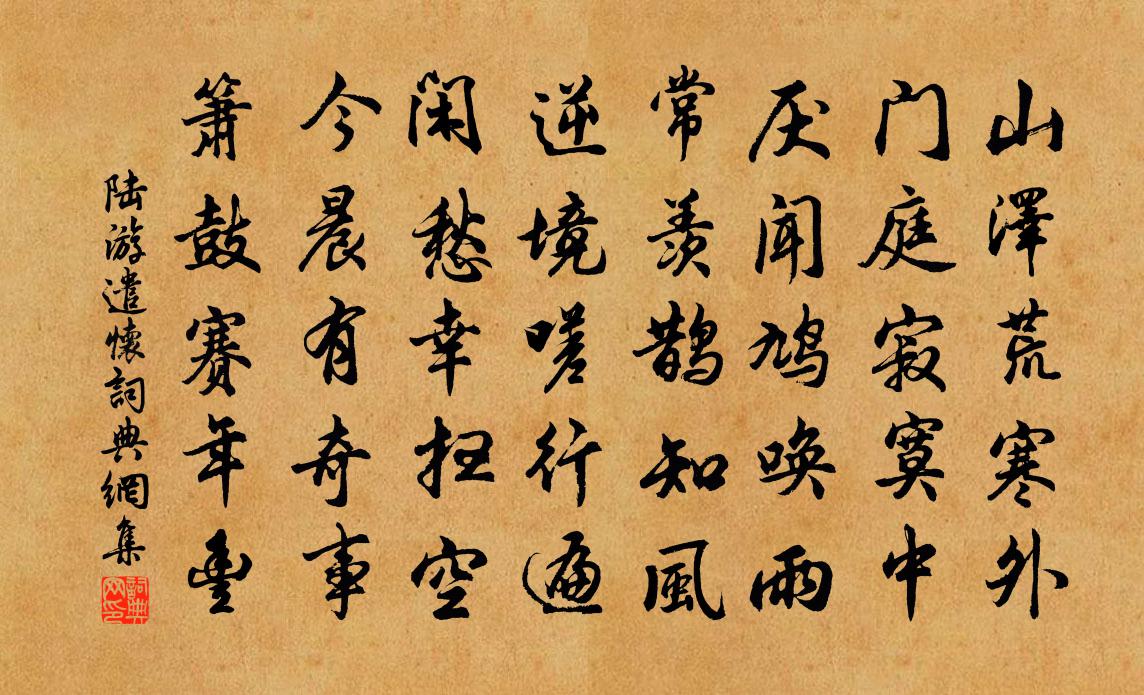 山澤荒寒外
门庭寂寞中
厌闻鸠唤雨
常羡鹊知風
逆境嗟行遍
闲愁幸扫空
今晨有奇事
箫鼓賽年豊
陆游遣懷詞典網集
詞典网印